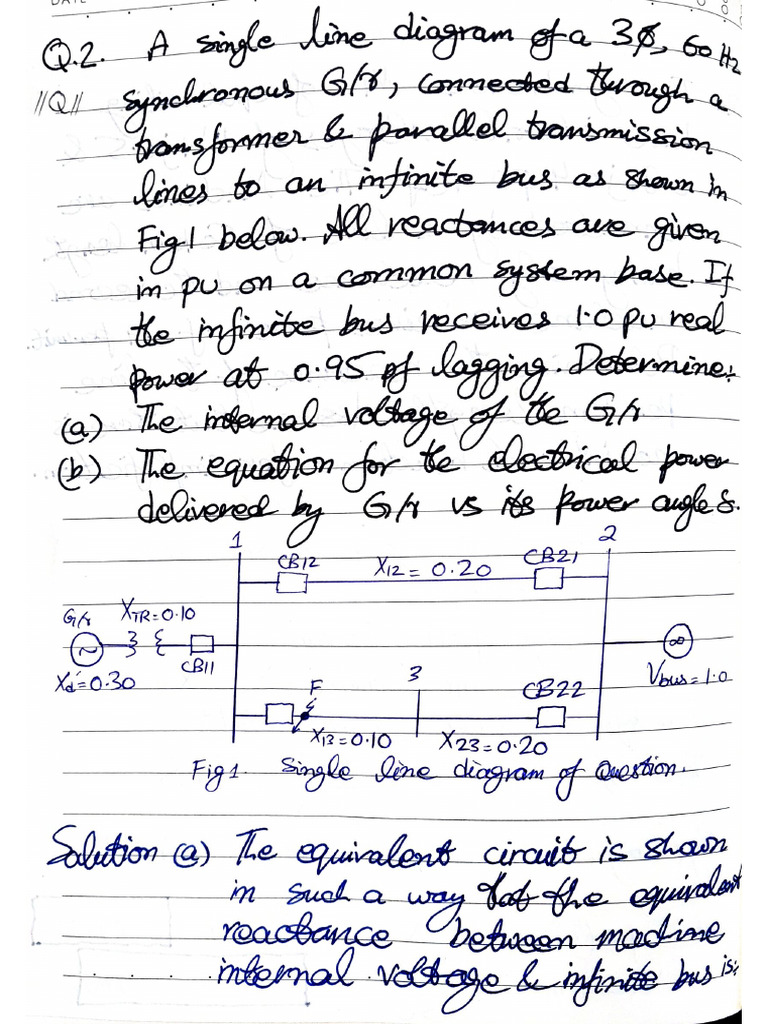 Q.2. A single line diagram of a 3ϕ, 60 Hz
//Q// synchronous G/r, connected through a
transformer & parallel transmission
lines to an infinite bus as shown in
Fig.1 below. All reactances are given
in pu on a common system base. If
the infinite bus receives 1.0 pu real
power at 0.95 pf lagging. Determine:
(a) The internal voltage of the G/r
(b) The equation for the electrical power
delivered by G/r vs its power angle δ.
1 2
CB12 X12 = 0.20 CB21
G/r XTR=0.10
~ CB11 ∞
Xd'=0.30 3 Vbus=1.0
F CB22
X13=0.10 X23=0.20
Fig 1. Single line diagram of Question.
Solution (a) The equivalent circuit is shown
in such a way that the equivalent
reactance between machine
internal voltage & infinite bus is: